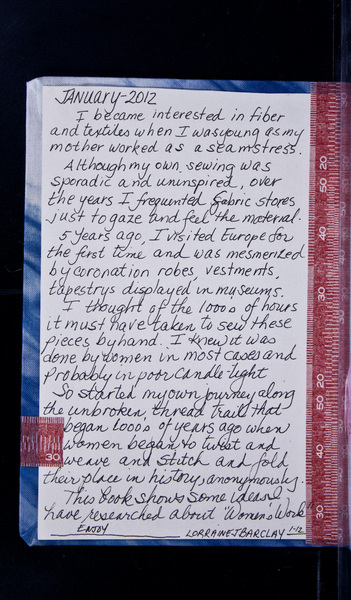 JANUARY-2012
I became interested in fiber
and textiles when I was young as my
mother worked as a seamstress.
Although my own sewing was
sporadic and uninspired, over
the years I frequented fabric stores
just to gaze and feel the material.
5 years ago, I visited Europe for
the first time and was mesmerized
by coronation robes, vestments,
tapestrys displayed in museums.
I thought of the 1000s of hours
it must have taken to sew these
pieces by hand. I knew it was
done by women in most cases and
probably in poor candle light
So started my own journey along
the unbroken, thread trail that
began 1000's of years ago when
women began to twist and
weave and stitch and fold
their place in history, anonymously.
This book shows some ideas I
have researched about 'Women's Work'
ENJOY
LORRAINE J BARCLAY 1-12
20
50
30
40
40
30
50
20
30
30